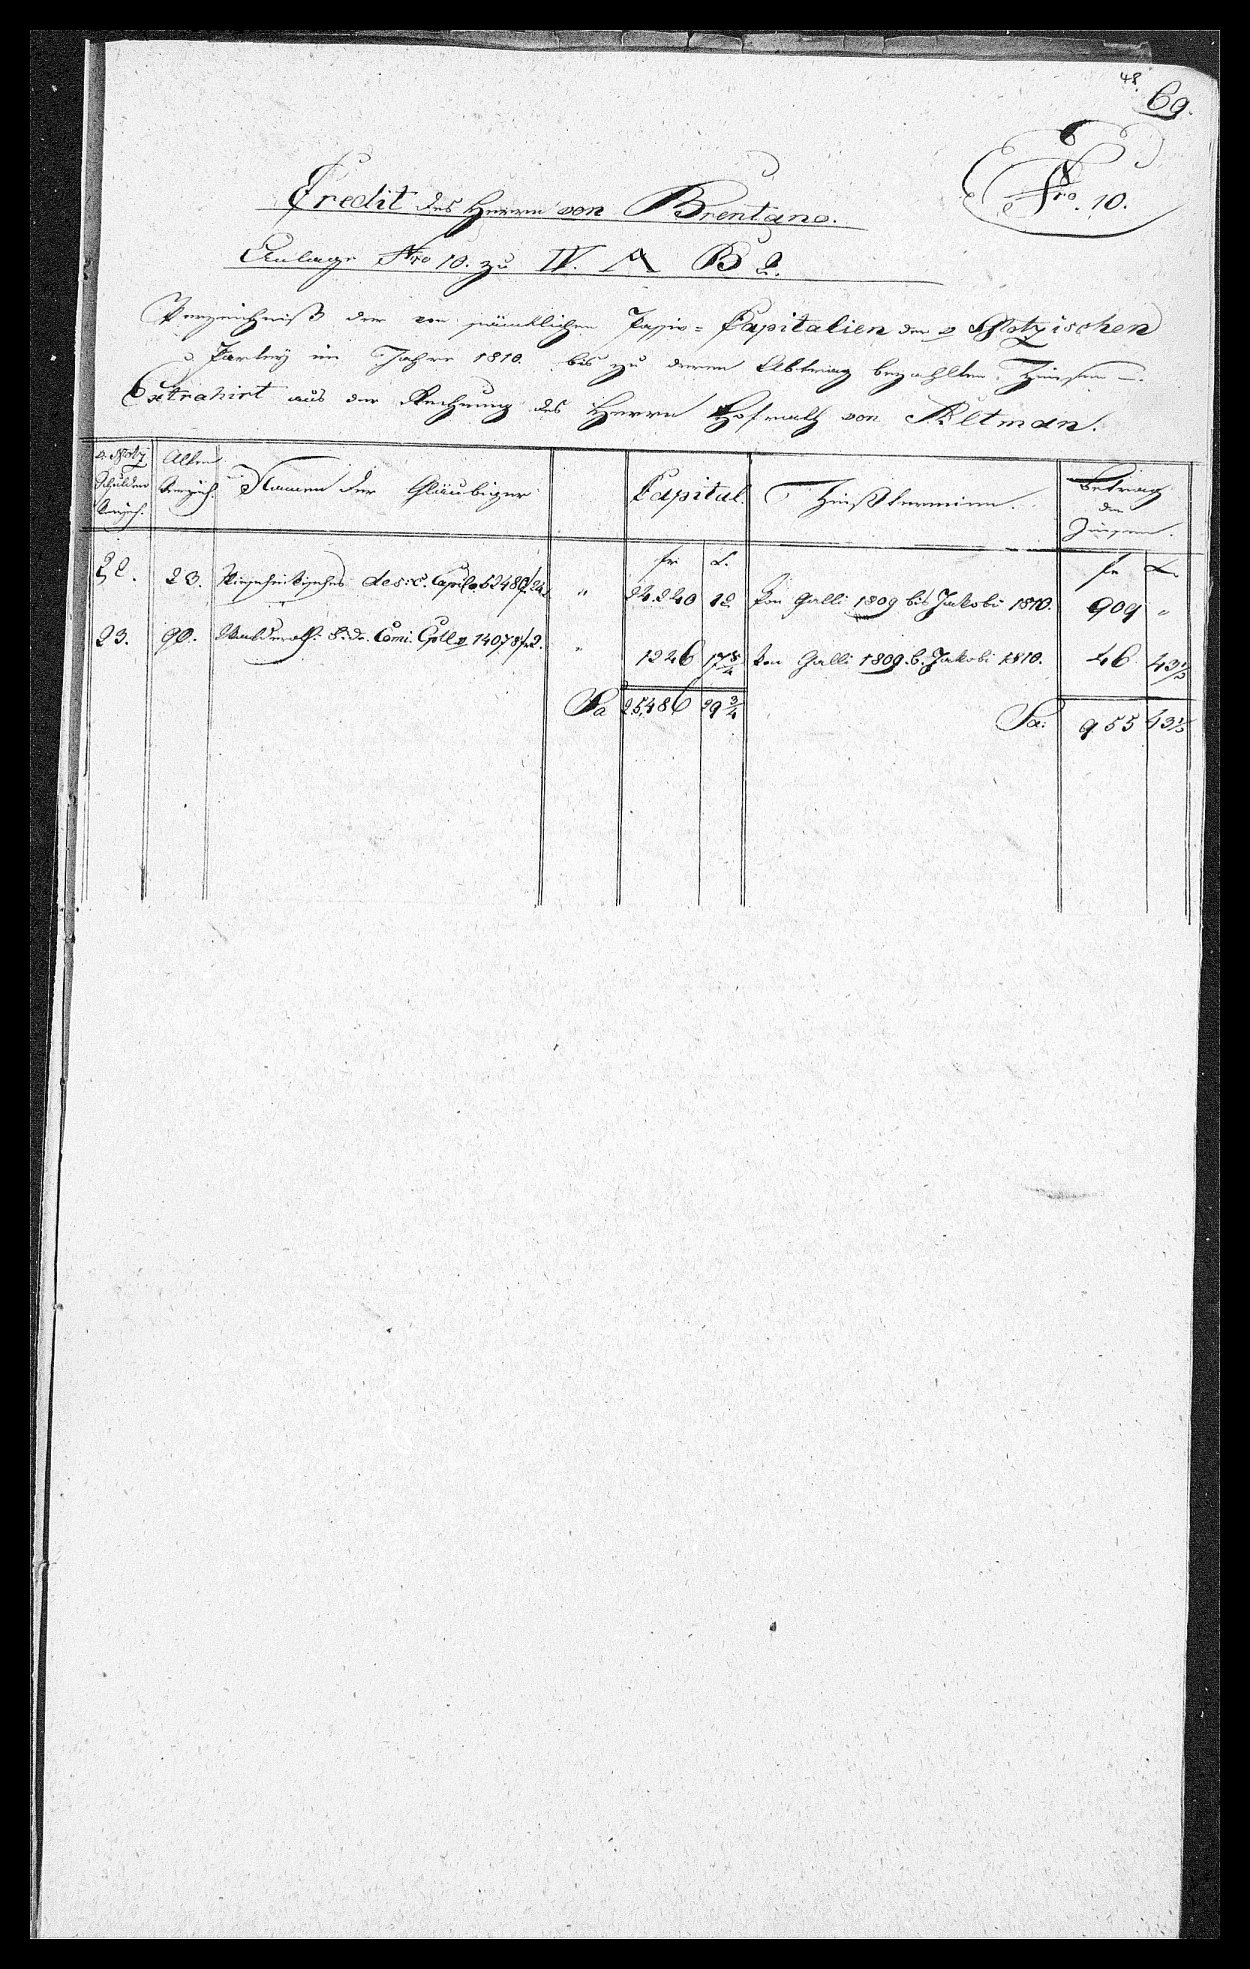 48.
69.
Nro. 10.
Credit des Herrn von Brentano.
Anlage Nro 10. zu IV. A B 2.
Verzeichniß der von sämtlichen Passiv-Capitalien der v Motzischen
Partey im Jahre 1810. bis zu deren Abtrag bezahlten Zinsen.
Extrahirt aus der Rechnung des Herrn Hofrath von
v. Motz Schulden Verzeich. | Alten Verzeich. | Namen der Gläubiger | Capital. | Zinßtermine. | Betrag der Zinsen.
fr | fr
22. | 23. | 52480 | " | 24.240 | 12 | Von Galli 1809 bis Jakobi 1810. | 909 | "
23. | 90. | 14078 | " | 1246 | 17 3/4 | Von Galli 1809. b. Jakobi 1810. | 46 | 43 1/2
Sa | 25,486 | 29 3/4 | Sa: | 955 | 43 1/2